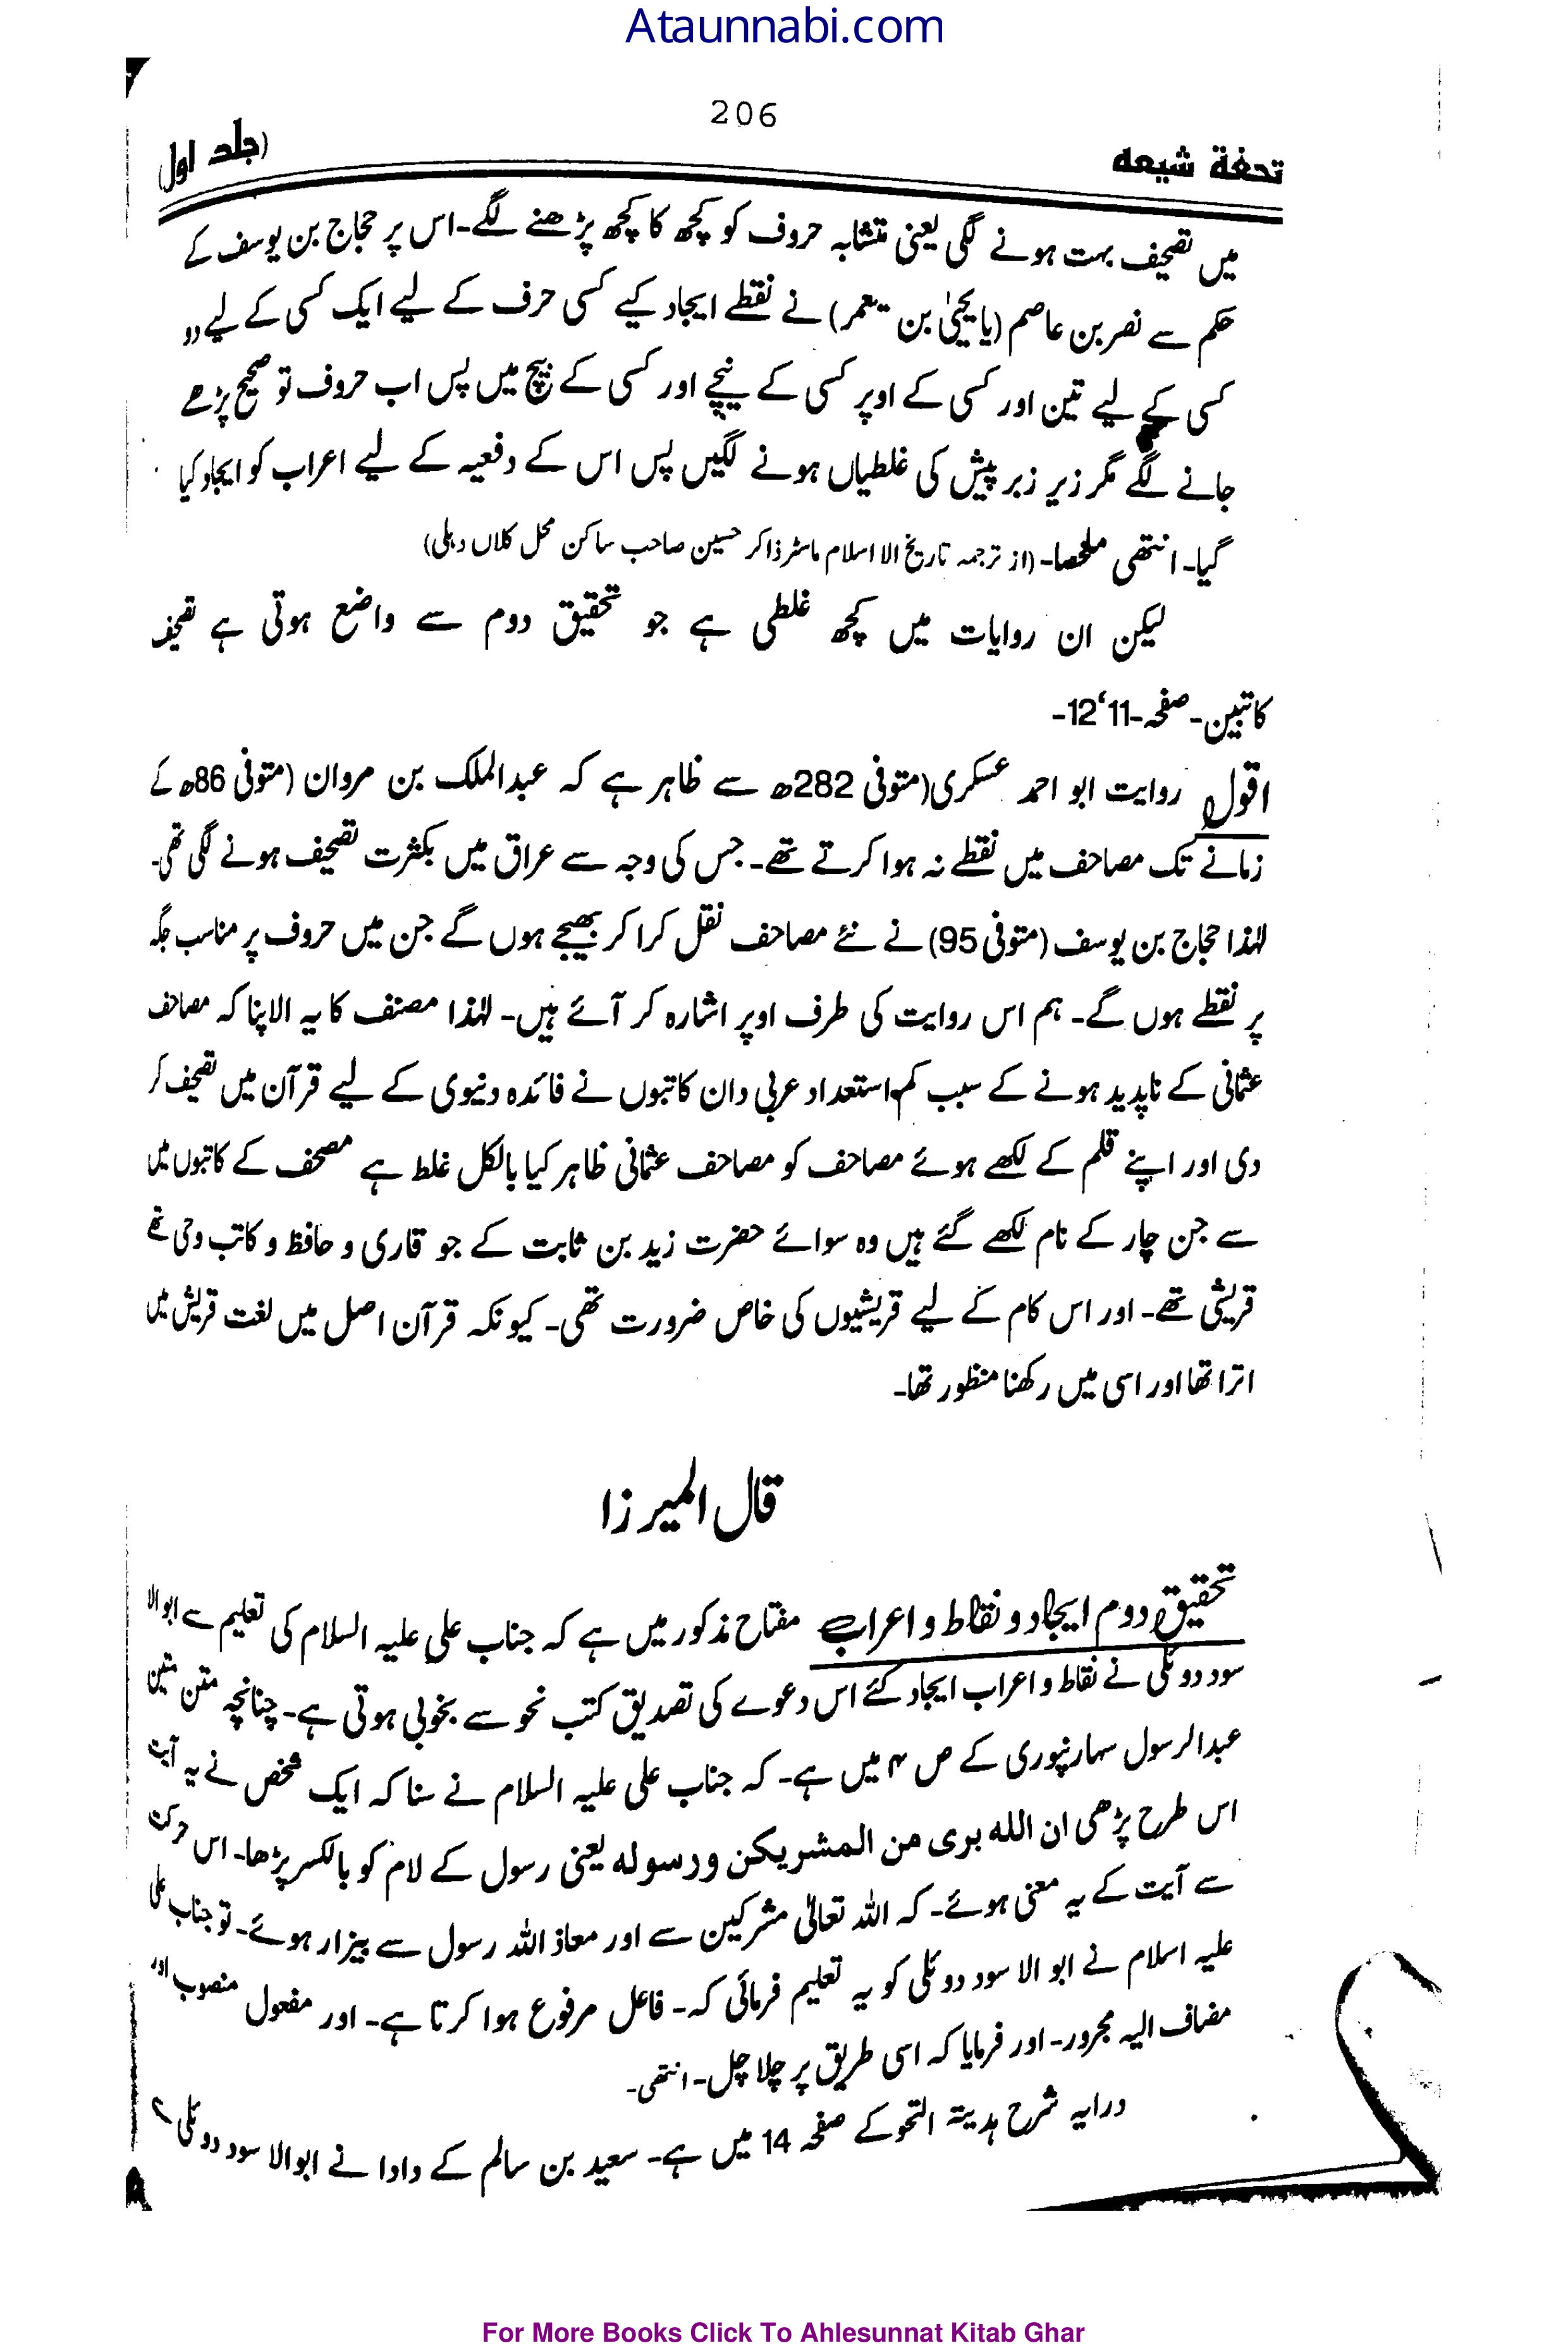 Ataunnabi.com
206
تحفۃ شیعہ
(جلد اول)
میں تصحیف بہت ہونے لگی یعنی متشابہ حروف کو کچھ کا کچھ پڑھنے لگے۔ اس پر حجاج بن یوسف کے
حکم سے نصر بن عاصم (یا یحییٰ بن یعمر) نے نقطے ایجاد کیے کسی حرف کے لیے ایک کسی کے لیے دو
کسی کے لیے تین اور کسی کے اوپر کسی کے نیچے اور کسی کے بیچ میں پس اب حروف تو صحیح پڑھے
جانے لگے مگر زیر زبر پیش کی غلطیاں ہونے لگیں پس اس کے دفعیہ کے لیے اعراب کو ایجاد کیا
گیا۔ انتھی ملخصا۔ (از ترجمہ تاریخ الا اسلام ماسٹر ذاکر حسین صاحب ساکن محل کلاں دہلی)
لیکن ان روایات میں کچھ غلطی ہے جو تحقیق دوم سے واضع ہوتی ہے تصحیف
کاتبین۔ صفحہ۔11‘12۔
اقول روایت ابو احمد عسکری (متوفی 282ھ سے ظاہر ہے کہ عبدالملک بن مروان (متوفی 86ھ کے
زمانے تک مصاحف میں نقطے نہ ہوا کرتے تھے۔ جس کی وجہ سے عراق میں بکثرت تصحیف ہونے لگی تھی۔
لہٰذا حجاج بن یوسف (متوفی 95) نے نئے مصاحف نقل کرا کر بھیجے ہوں گے جن میں حروف پر مناسب جگہ
پر نقطے ہوں گے۔ ہم اس روایت کی طرف اوپر اشارہ کر آئے ہیں۔ لہٰذا مصنف کا یہ الاپنا کہ مصاحف
عثمانی کے ناپدید ہونے کے سبب کم استعداد عربی دان کاتبوں نے فائدہ دنیوی کے لیے قرآن میں تصحیف کر
دی اور اپنے قلم کے لکھے ہوئے مصاحف کو مصاحف عثمانی ظاہر کیا بالکل غلط ہے مصحف کے کاتبوں میں
سے جن چار کے نام لکھے گئے ہیں وہ سوائے حضرت زید بن ثابت کے جو قاری و حافظ و کاتب وحی تھے
قریشی تھے۔ اور اس کام کے لیے قریشیوں کی خاص ضرورت تھی۔ کیونکہ قرآن اصل میں لغت قریش میں
اترا تھا اور اسی میں رکھنا منظور تھا۔
قال المیرزا
تحقیق دوم ایجاد و نقاط و اعراب مفتاح مذکور میں ہے کہ جناب علی علیہ السلام کی تعلیم سے ابوالا
سود دوئلی نے نقاط و اعراب ایجاد کئے اس دعوے کی تصدیق کتب نحو سے بخوبی ہوتی ہے۔ چنانچہ متن متین
عبدالرسول سہارنپوری کے ص ۴ میں ہے۔ کہ جناب علی علیہ السلام نے سنا کہ ایک شخص نے یہ آیت
اس طرح پڑھی ان اللہ بری من المشریکن ورسولہ یعنی رسول کے لام کو بالکسر پڑھا۔ اس حرکت
سے آیت کے یہ معنی ہوئے۔ کہ اللہ تعالیٰ مشرکین سے اور معاذ اللہ رسول سے بیزار ہوئے۔ تو جناب علی
علیہ اسلام نے ابو الا سود دوئلی کو یہ تعلیم فرمائی کہ۔ فاعل مرفوع ہوا کرتا ہے۔ اور مفعول منصوب اور
مضاف الیہ مجرور۔ اور فرمایا کہ اسی طریق پر چلا چل۔ انتھی۔
درایہ شرح ہدیتہ النحو کے صفحہ 14 میں ہے۔ سعید بن سالم کے دادا نے ابوالا سود دوئلی
For More Books Click To Ahlesunnat Kitab Ghar